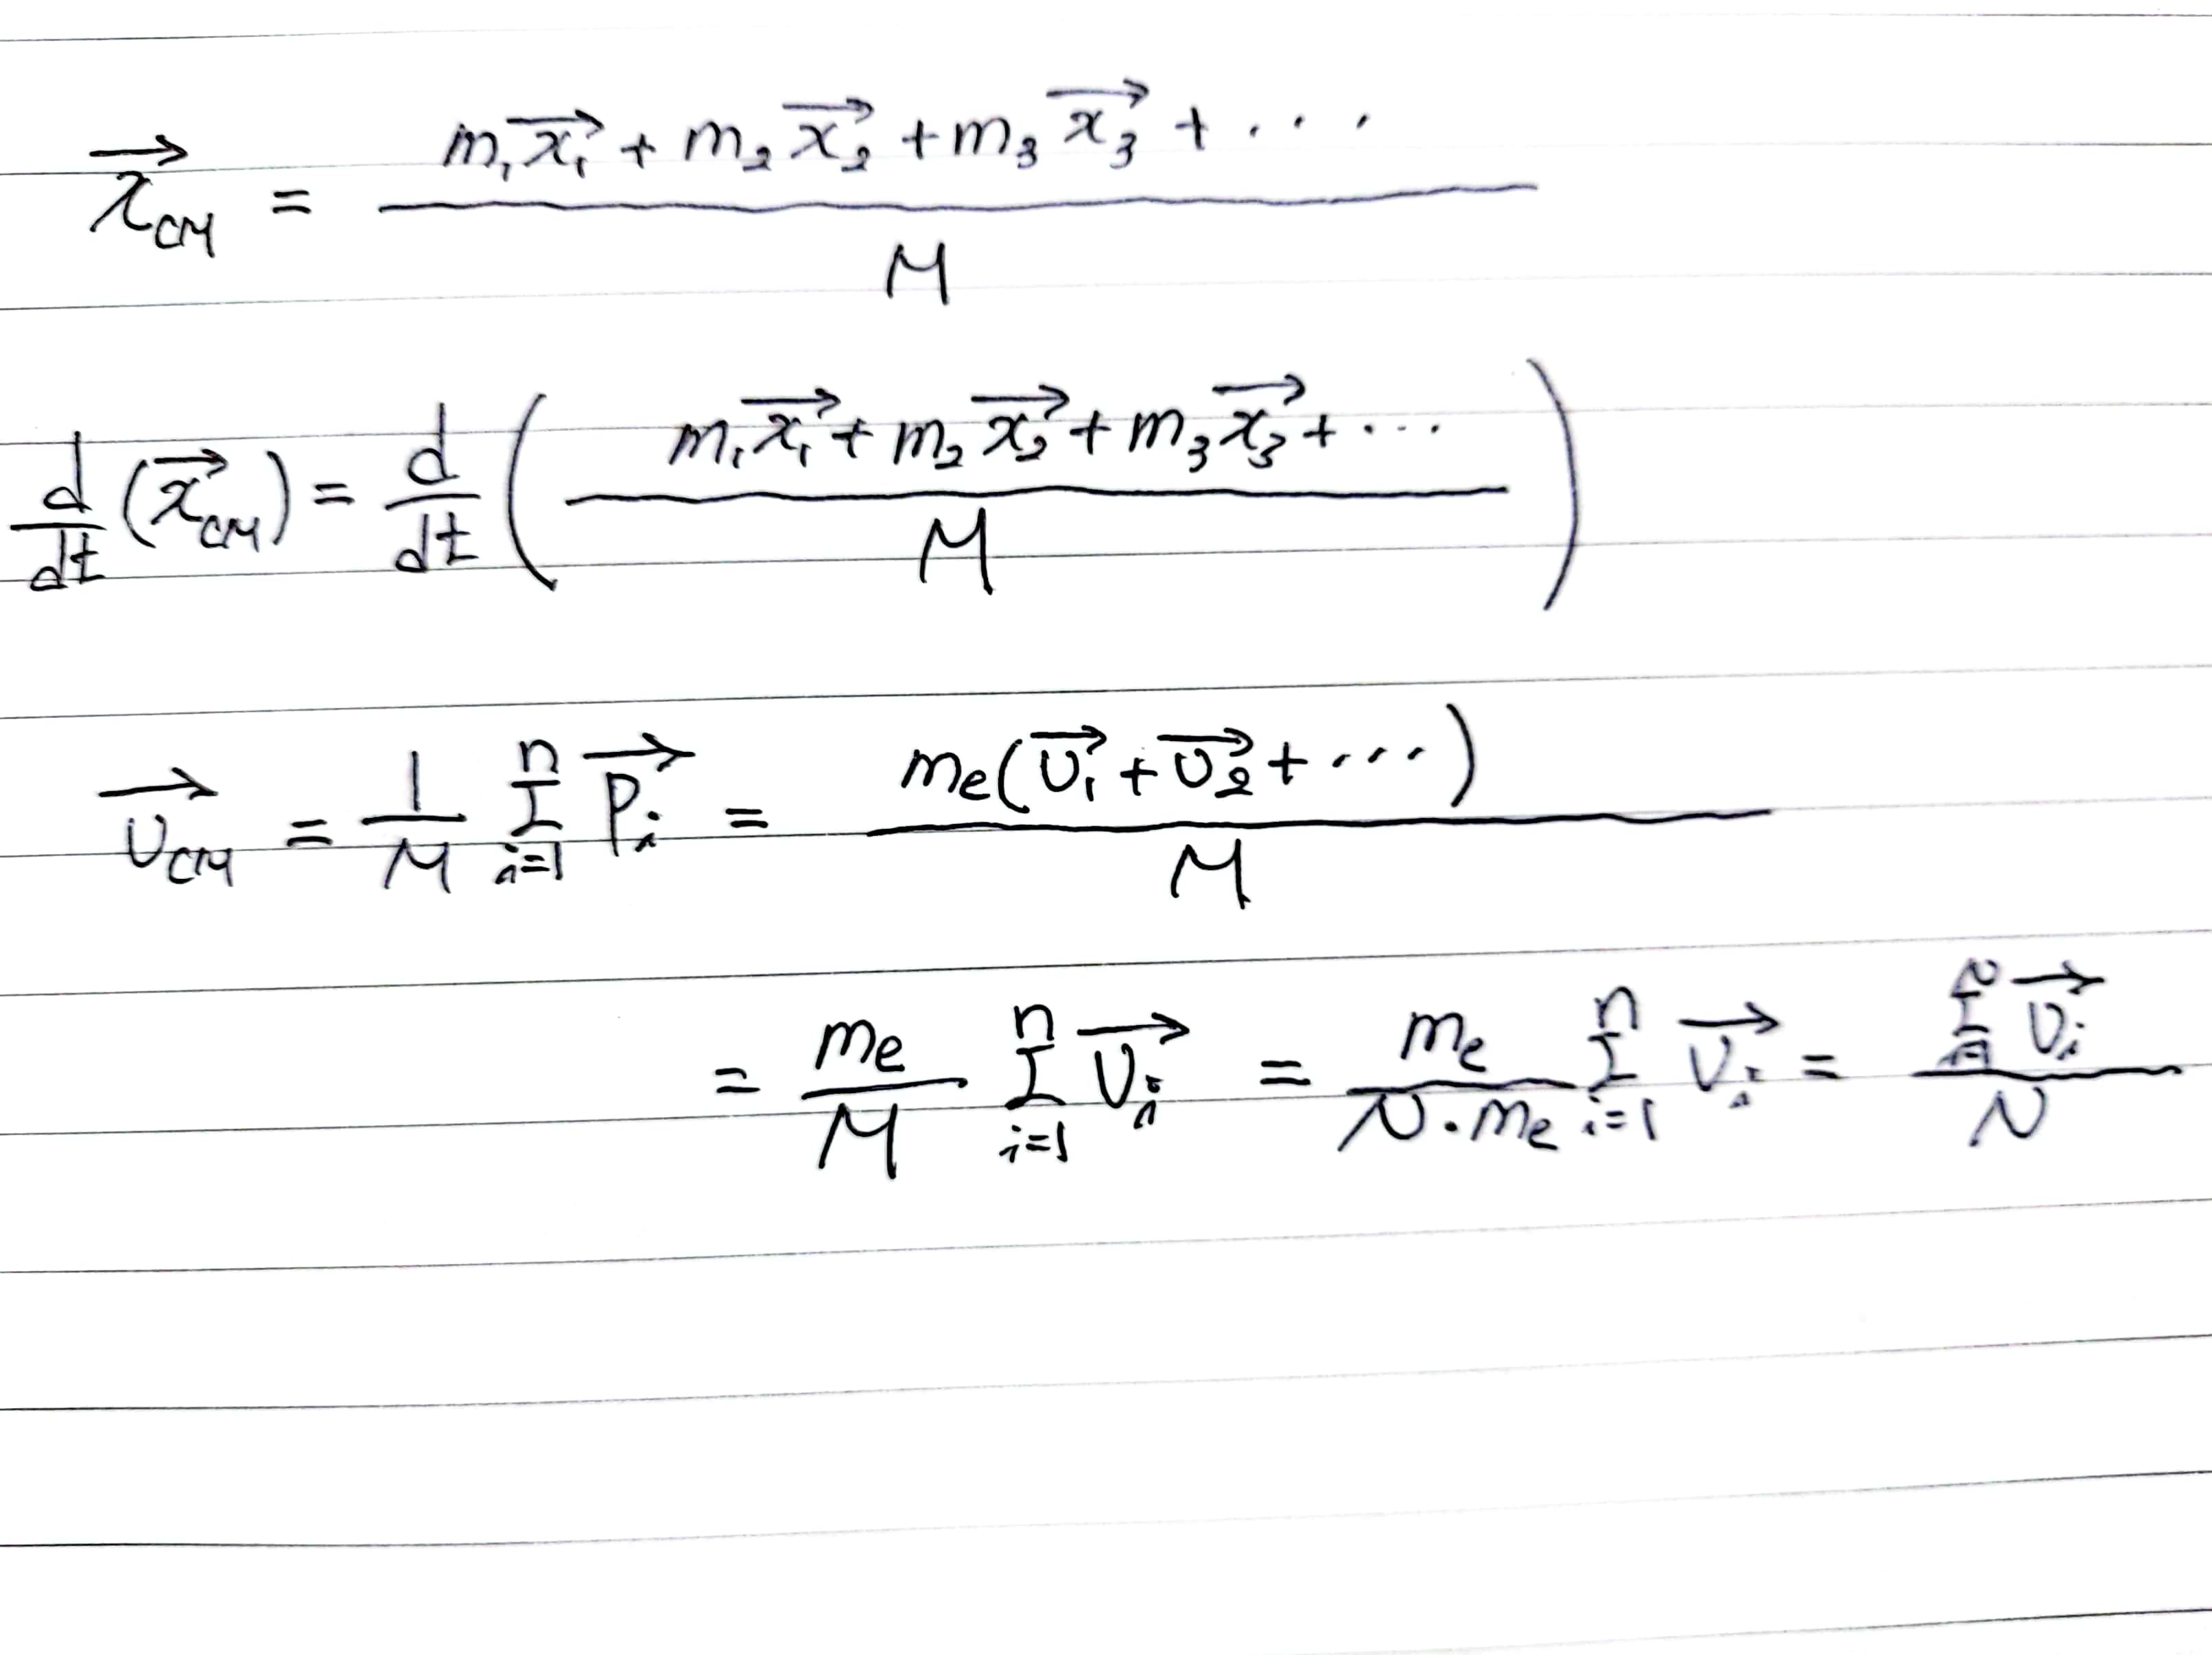 $\overrightarrow{x_{CM}} = \frac{m_1\overrightarrow{x_1} + m_2\overrightarrow{x_2} + m_3\overrightarrow{x_3} + \cdots}{M}$
$\frac{d}{dt}(\overrightarrow{x_{CM}}) = \frac{d}{dt}\left(\frac{m_1\overrightarrow{x_1} + m_2\overrightarrow{x_2} + m_3\overrightarrow{x_3} + \cdots}{M}\right)$
$\overrightarrow{v_{CM}} = \frac{1}{M}\sum_{i=1}^{n}\overrightarrow{p_i} = \frac{m_e(\overrightarrow{v_1} + \overrightarrow{v_2} + \cdots)}{M}$
$= \frac{m_e}{M}\sum_{i=1}^{n}\overrightarrow{v_i} = \frac{m_e}{N \cdot m_e}\sum_{i=1}^{n}\overrightarrow{v_i} = \frac{\sum_{i=1}^{N}\overrightarrow{v_i}}{N}$